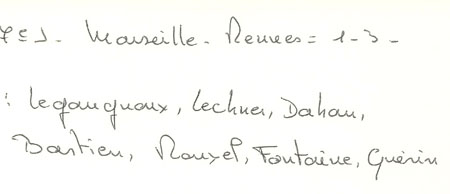 Marseille - Rennes = 1-3-
: Legangneux, Lechner, Dahan,
Bastien, Rouxel, Fontaine, Guérin